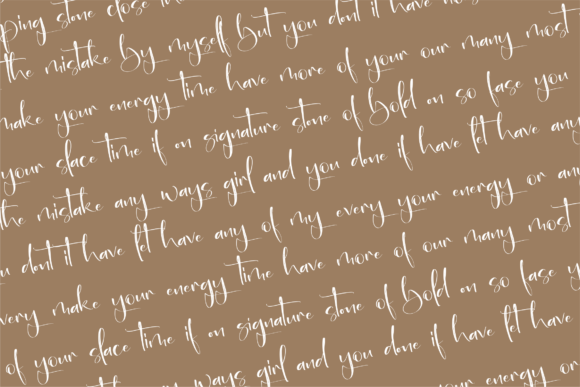 ping stone close
the mistake by myself but you dont it have
make your energy time have more of your our many most
your slace time if on signature stone of bold on so fase you
the mistake any ways girl and you done if have let have any
u dont it have let have any of my every your energy or an
very make your energy time have more of our many most
of your slace time if on signature stone of bold on so fase y
any ways girl and you done if have let have
your energy or